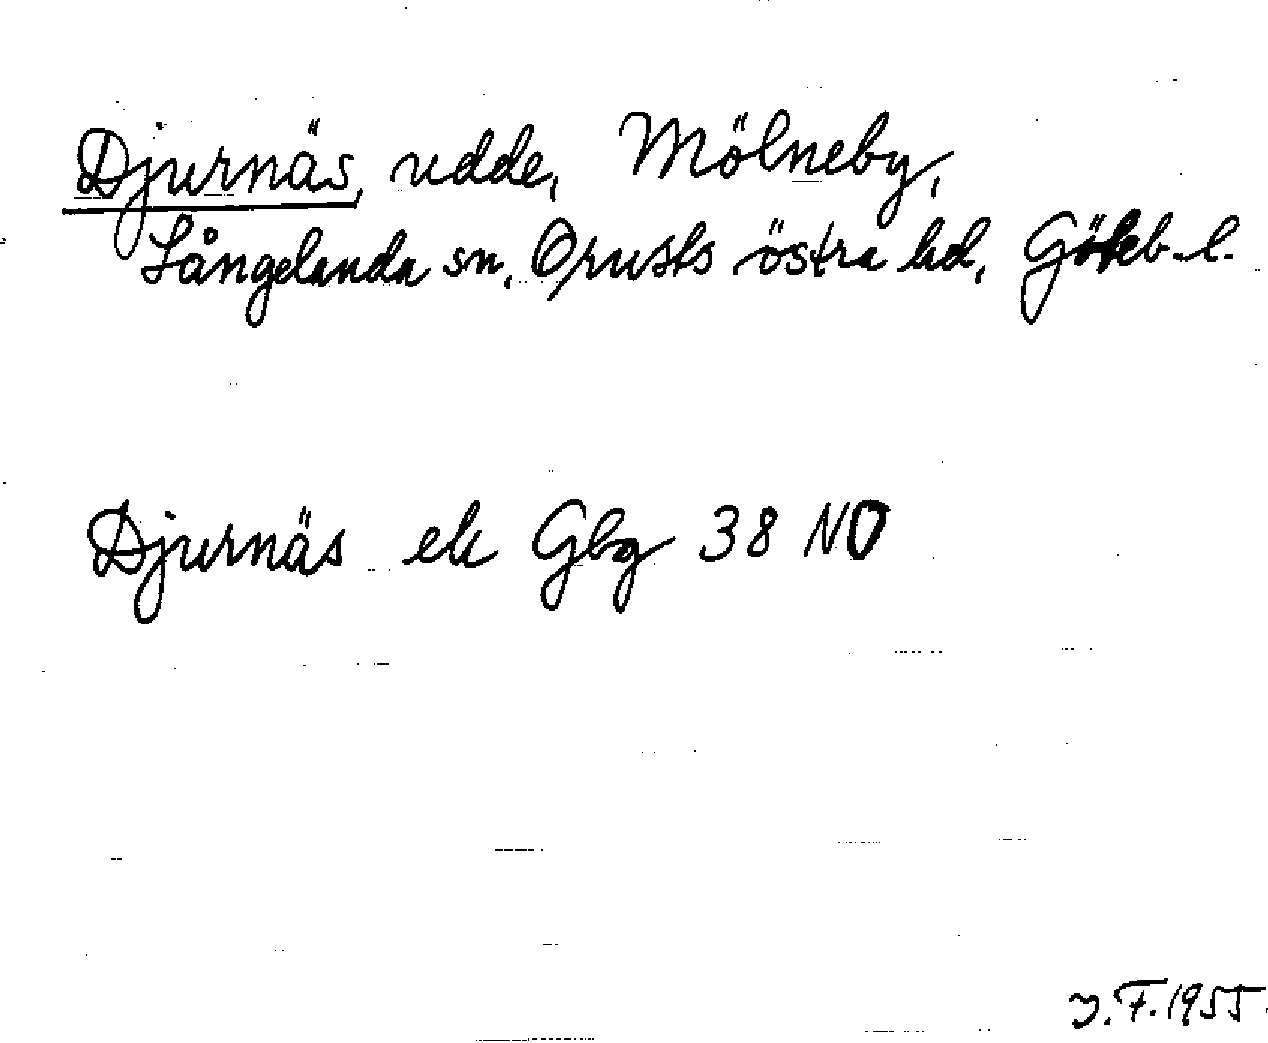 Djurnäs, udde, Mölneby,
Långelanda sn, Orusts östra hd, Göteb. l.
Djurnäs ek Gbg 38 NO
J. F. 1955.